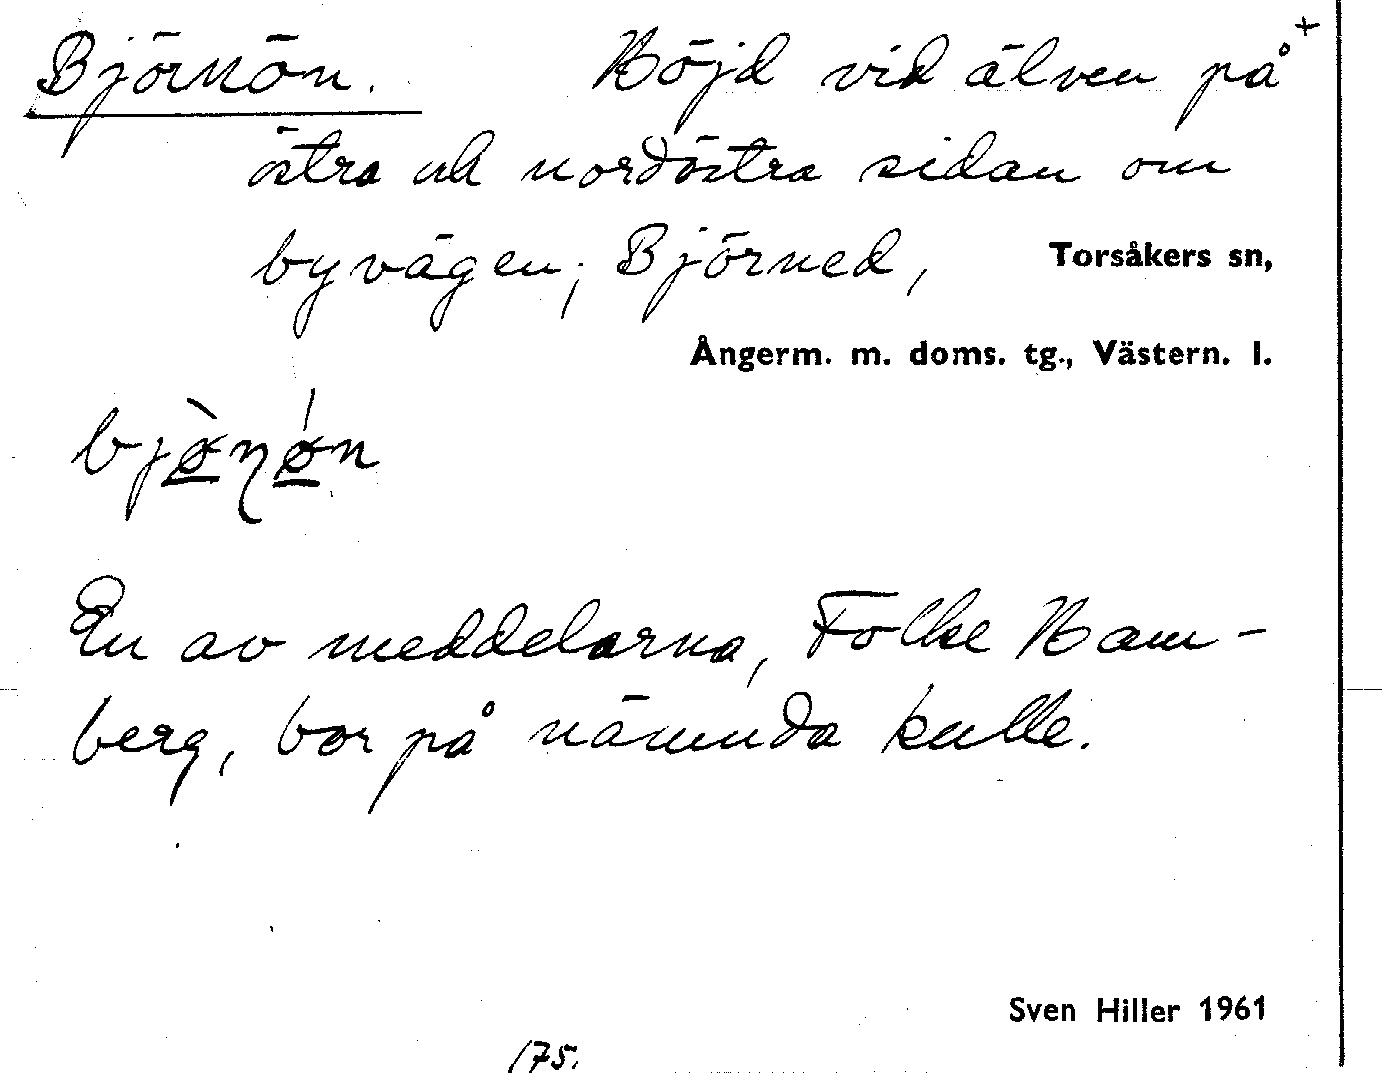 Björnön. Höjd vid älven på +
östra och nordöstra sidan om
byvägen; Björned, Torsåkers sn,
Ångerm. m. doms. tg., Västern. l.
bjø̀ɳǿn
En av meddelarna, Folke Ham-
berg, bor på nämnda kulle.
Sven Hiller 1961
175.